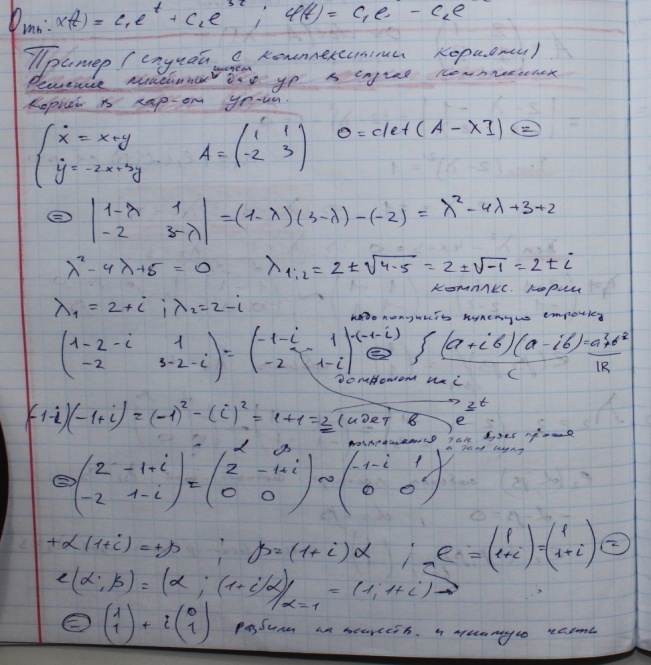 Отв: x(t) = C₁e^t + C₂e^{3t} ; y(t) = C₁e - C₂e
Пример (случай с комплексными корнями)
Решение линейных систем диф ур в случае комплексных
корней в хар-ом ур-ии.
{ ẋ = x+y
ẏ = -2x+3y
A = (1 1
-2 3)
0 = det(A - λI) =
= |1-λ 1
-2 3-λ| = (1-λ)(3-λ)-(-2) = λ² - 4λ+3+2
λ² - 4λ+5 = 0 λ₁,₂ = 2 ± √4-5 = 2 ± √-1 = 2 ± i
комплекс. корни
λ₁ = 2+i ; λ₂ = 2-i
надо получить нулевую строчку
(1-2-i 1
-2 3-2-i) = (-1-i 1
-2 1-i) ·(-1-i) = { (a+ib)(a-ib) = a²+b²
C IR
домножаем на i
(-1-i)(-1+i) = (-1)² - (i)² = 1+1 = 2 (идет в e^{2t}
= (2 -1+i
-2 1-i) = (α β
2 -1+i
0 0) ~ (-1-i 1
0 0)
+α(1+i) = +β ; β = (1+i)α ; e = (1
1+i) = (1
1+i) =
e(α;β) = (α ; (1+i)α)|α=1 = (1, 1+i)
= (1
1) + i(0
1) разбили на веществ. и мнимую часть